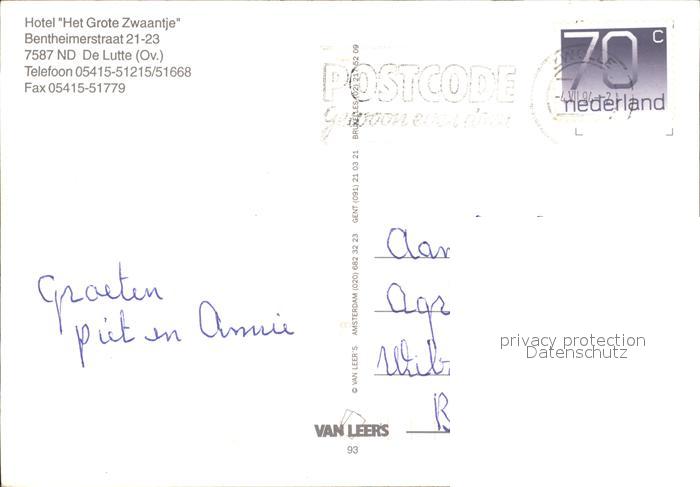 Hotel "Het Grote Zwaantje"
Bentheimerstraat 21-23
7587 ND De Lutte (Ov.)
Telefoon 05415-51215/51668
Fax 05415-51779
POSTCODE
70 c
nederland
Groeten
piet en Annie
Aan
Agr
Wib
R
privacy protection
Datenschutz
© VAN LEER'S AMSTERDAM (020) 682 32 23 GENT (091) 21 03 21 BRUXELLES (02) 217 52 09
VAN LEERS
93